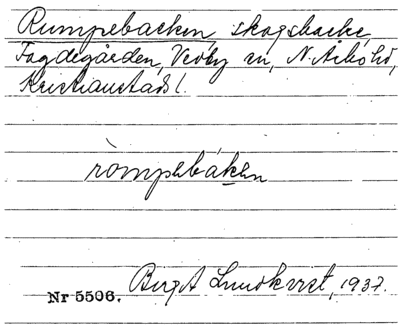 Rumpebacken skogsbacke,
Fagdegården, Verby sn, N. Åsbo hd,
Kristianstads l.
ròmpebákɛn
Nr 5506. Birgit Lundkvist, 1937.